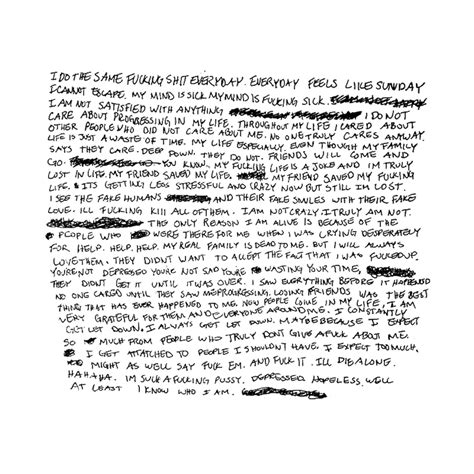 I DO THE SAME FUCKING SHIT EVERYDAY. EVERYDAY FEELS LIKE SUNDAY
I CANNOT ESCAPE. MY MIND IS SICK. MY MIND IS FUCKING SICK.
I AM NOT SATISFIED WITH ANYTHING I DO NOT
CARE ABOUT PROGRESSING IN MY LIFE. THROUGHOUT MY LIFE I CARED ABOUT
OTHER PEOPLE WHO DID NOT CARE ABOUT ME. NO ONE TRULY CARES ANYWAY.
LIFE IS JUST A WASTE OF TIME. MY LIFE ESPECIALLY. EVEN THOUGH MY FAMILY
SAYS THEY CARE. DEEP DOWN. THEY DO NOT. FRIENDS WILL COME AND
GO. YOU KNOW. MY FUCKING LIFE IS A JOKE AND IM TRULY
LOST IN LIFE. MY FRIEND SAVED MY LIFE. MY FRIEND SAVED MY FUCKING
LIFE. ITS GETTING LESS STRESSFUL AND CRAZY NOW BUT STILL IM LOST.
I SEE THE FAKE HUMANS AND THEIR FAKE SMILES WITH THEIR FAKE
LOVE. ILL FUCKING KILL ALL OF THEM. I AM NOT CRAZY. I TRULY AM NOT.
THE ONLY REASON I AM ALIVE IS BECAUSE OF THE
PEOPLE WHO WERE THERE FOR ME WHEN I WAS CRYING DESPERATELY
FOR HELP. HELP. HELP. MY REAL FAMILY IS DEAD TO ME. BUT I WILL ALWAYS
LOVE THEM. THEY DIDN'T WANT TO ACCEPT THE FACT THAT I WAS FUCKED UP.
YOU'RE NOT DEPRESSED YOU'RE NOT SAD YOU'RE WASTING YOUR TIME,
THEY DIDN'T GET IT UNTIL IT WAS OVER. I SAW EVERYTHING BEFORE IT HAPPENED
NO ONE CARED UNTIL THEY SAW ME PROGRESSING. LOSING FRIENDS WAS THE BEST
THING THAT HAS EVER HAPPENED TO ME. NOW PEOPLE COME IN MY LIFE, I AM
VERY GRATEFUL FOR THEM AND EVERYONE AROUND ME. I CONSTANTLY
GET LET DOWN. I ALWAYS GET LET DOWN. MAYBE BECAUSE I EXPECT
SO MUCH FROM PEOPLE WHO TRULY DON'T GIVE A FUCK ABOUT ME.
I GET ATTATCHED TO PEOPLE I SHOULDN'T HAVE. I EXPECT TOO MUCH.
MIGHT AS WELL SAY FUCK EM. AND FUCK IT. ILL DIE ALONE.
HA.HA.HA. IM SUCH A FUCKING PUSSY. DEPRESSED. HOPELESS. WELL
AT LEAST I KNOW WHO I AM.